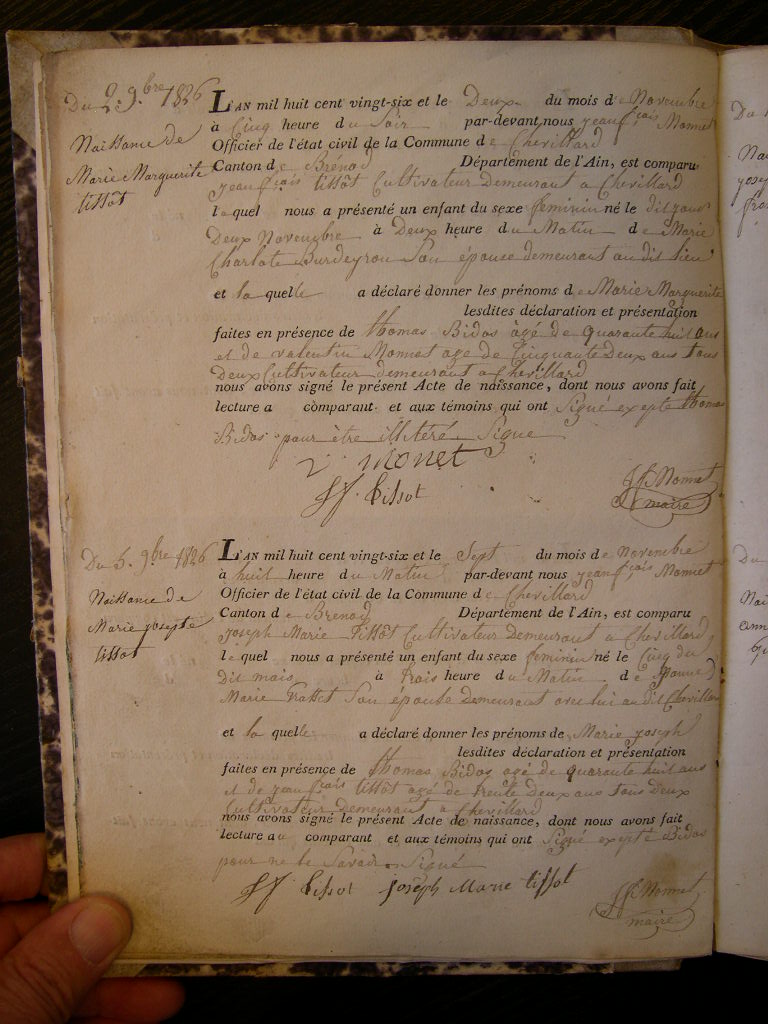 Du 2. 9.bre 1826
Naissance de
Marie Marguerite
tissôt
L'AN mil huit cent vingt-six et le Deux du mois de Novembre
à Cinq heure du Soir par-devant nous jean fçais Monnet
Officier de l'état civil de la Commune de Chevillard
Canton de Brénod Département de l'Ain, est comparu
jean fçais tissôt Cultivateur Demeurant a Chevillard
lequel nous a présenté un enfant du sexe feminin né le dit jour
Deux Novembre à Deux heure du Matin de Marie
Charlote Burdeyron Son épouse demeurant au dit lieu
et la quelle a déclaré donner les prénoms de Marie Marguerite
lesdites déclaration et présentation
faites en présence de thomas Bidos âgé de quarante huit ans
et de valentin Monnet age de Cinquante Deux ans tous
Deux Cultivateur demeurant a Chevillard
nous avons signé le présent Acte de naissance, dont nous avons fait
lecture a comparant et aux témoins qui ont Signé exepté thomas
Bidos pour être illiteré Signe
v monet
jf tissot
jf Monnet
maire
Du 5. 9.bre 1826
Naissance de
Marie josepte
tissot
L'AN mil huit cent vingt-six et le Sept du mois de Novembre
à huit heure du Matin par-devant nous jean fçais Monnet
Officier de l'état civil de la Commune de Chevillard
Canton de Brenod Département de l'Ain, est comparu
joseph Marie Tissôt Cultivateur Demeurant a Chevillard
lequel nous a présenté un enfant du sexe feminin né le Cinq du
Dit mois à trois heure du Matin de
Marie Son épouse demeurant avec lui au dit Chevillard
et la quelle a déclaré donner les prénoms de Marie joseph
lesdites déclaration et présentation
faites en présence de thomas Bidos agé de quarante huit ans
et de jean fçais tissôt agé de trente Deux ans tous Deux
Cultivateur Demeurant a Chevillard
nous avons signé le présent Acte de naissance, dont nous avons fait
lecture au comparant et aux témoins qui ont Signé exepté Bidos
pour ne le Savoir Signé
jf tissot joseph Marie tissot
jf Monnet
maire